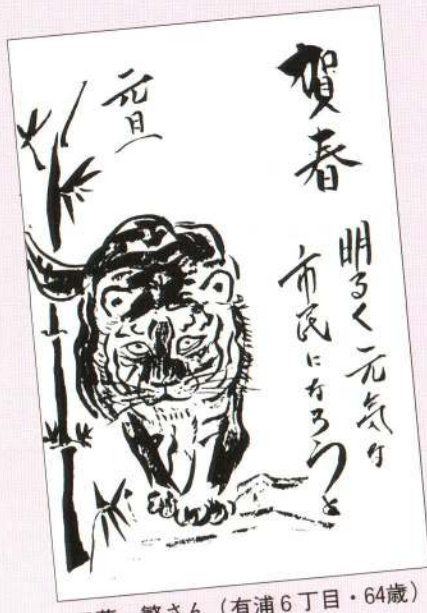 賀春
明るく元気な
市民になろうと
元旦
繁さん（有浦6丁目・64歳）